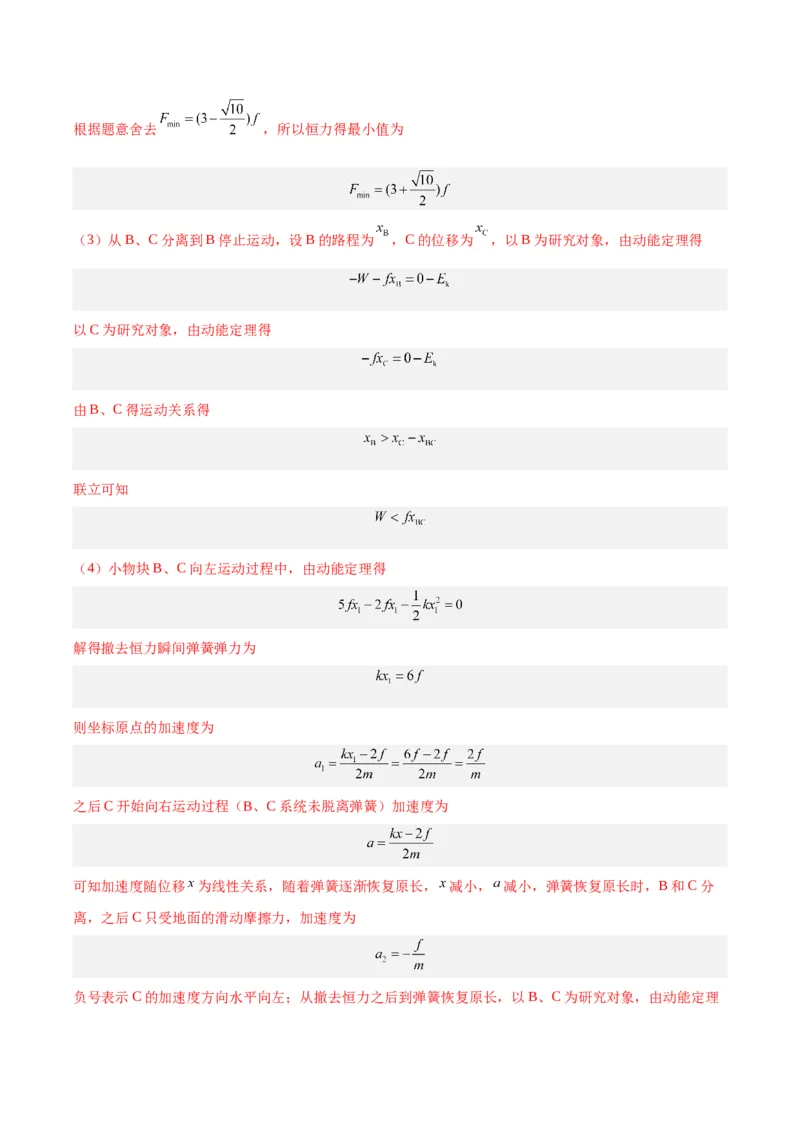 根据题意舍去 F_min = (3 − √10/2) f ，所以恒力得最小值为
F_min = (3 + √10/2) f
（3）从B、C分离到B停止运动，设B的路程为 x_B ，C的位移为 x_C ，以B为研究对象，由动能定理得
−W − fx_B = 0 − E_k
以C为研究对象，由动能定理得
− fx_C = 0 − E_k
由B、C得运动关系得
x_B > x_C − x_BC
联立可知
W < fx_BC
（4）小物块B、C向左运动过程中，由动能定理得
5fx_1 − 2fx_1 − 1/2 kx_1^2 = 0
解得撤去恒力瞬间弹簧弹力为
kx_1 = 6f
则坐标原点的加速度为
a_1 = (kx_1 − 2f)/2m = (6f − 2f)/2m = 2f/m
之后C开始向右运动过程（B、C系统未脱离弹簧）加速度为
a = (kx − 2f)/2m
可知加速度随位移 x 为线性关系，随着弹簧逐渐恢复原长， x 减小， a 减小，弹簧恢复原长时，B和C分
离，之后C只受地面的滑动摩擦力，加速度为
a_2 = − f/m
负号表示C的加速度方向水平向左；从撤去恒力之后到弹簧恢复原长，以B、C为研究对象，由动能定理